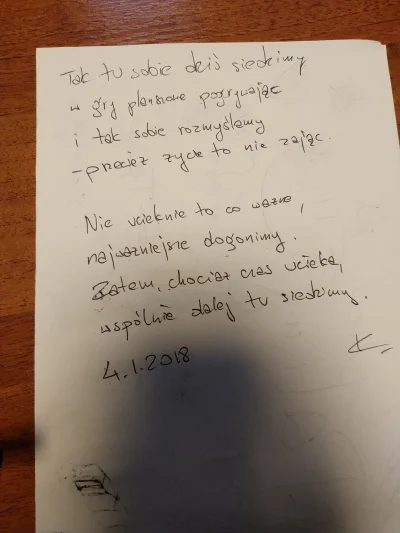 Tak tu sobie dziś siedzimy
w gry planszowe pogrywając
i tak sobie rozmyślamy
- przecież życie to nie zając.
Nie ucieknie to co ważne,
najważniejsze dogonimy.
Zatem, chociaż czas ucieka,
wspólnie dalej tu siedzimy.
4.1.2018